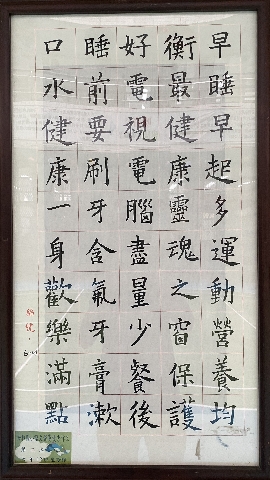 早睡早起多運動營養均
衡最健康靈魂之窗保護
好電視電腦盡量少餐後
睡前要刷牙含氟牙膏漱
口水健康一身歡樂滿點